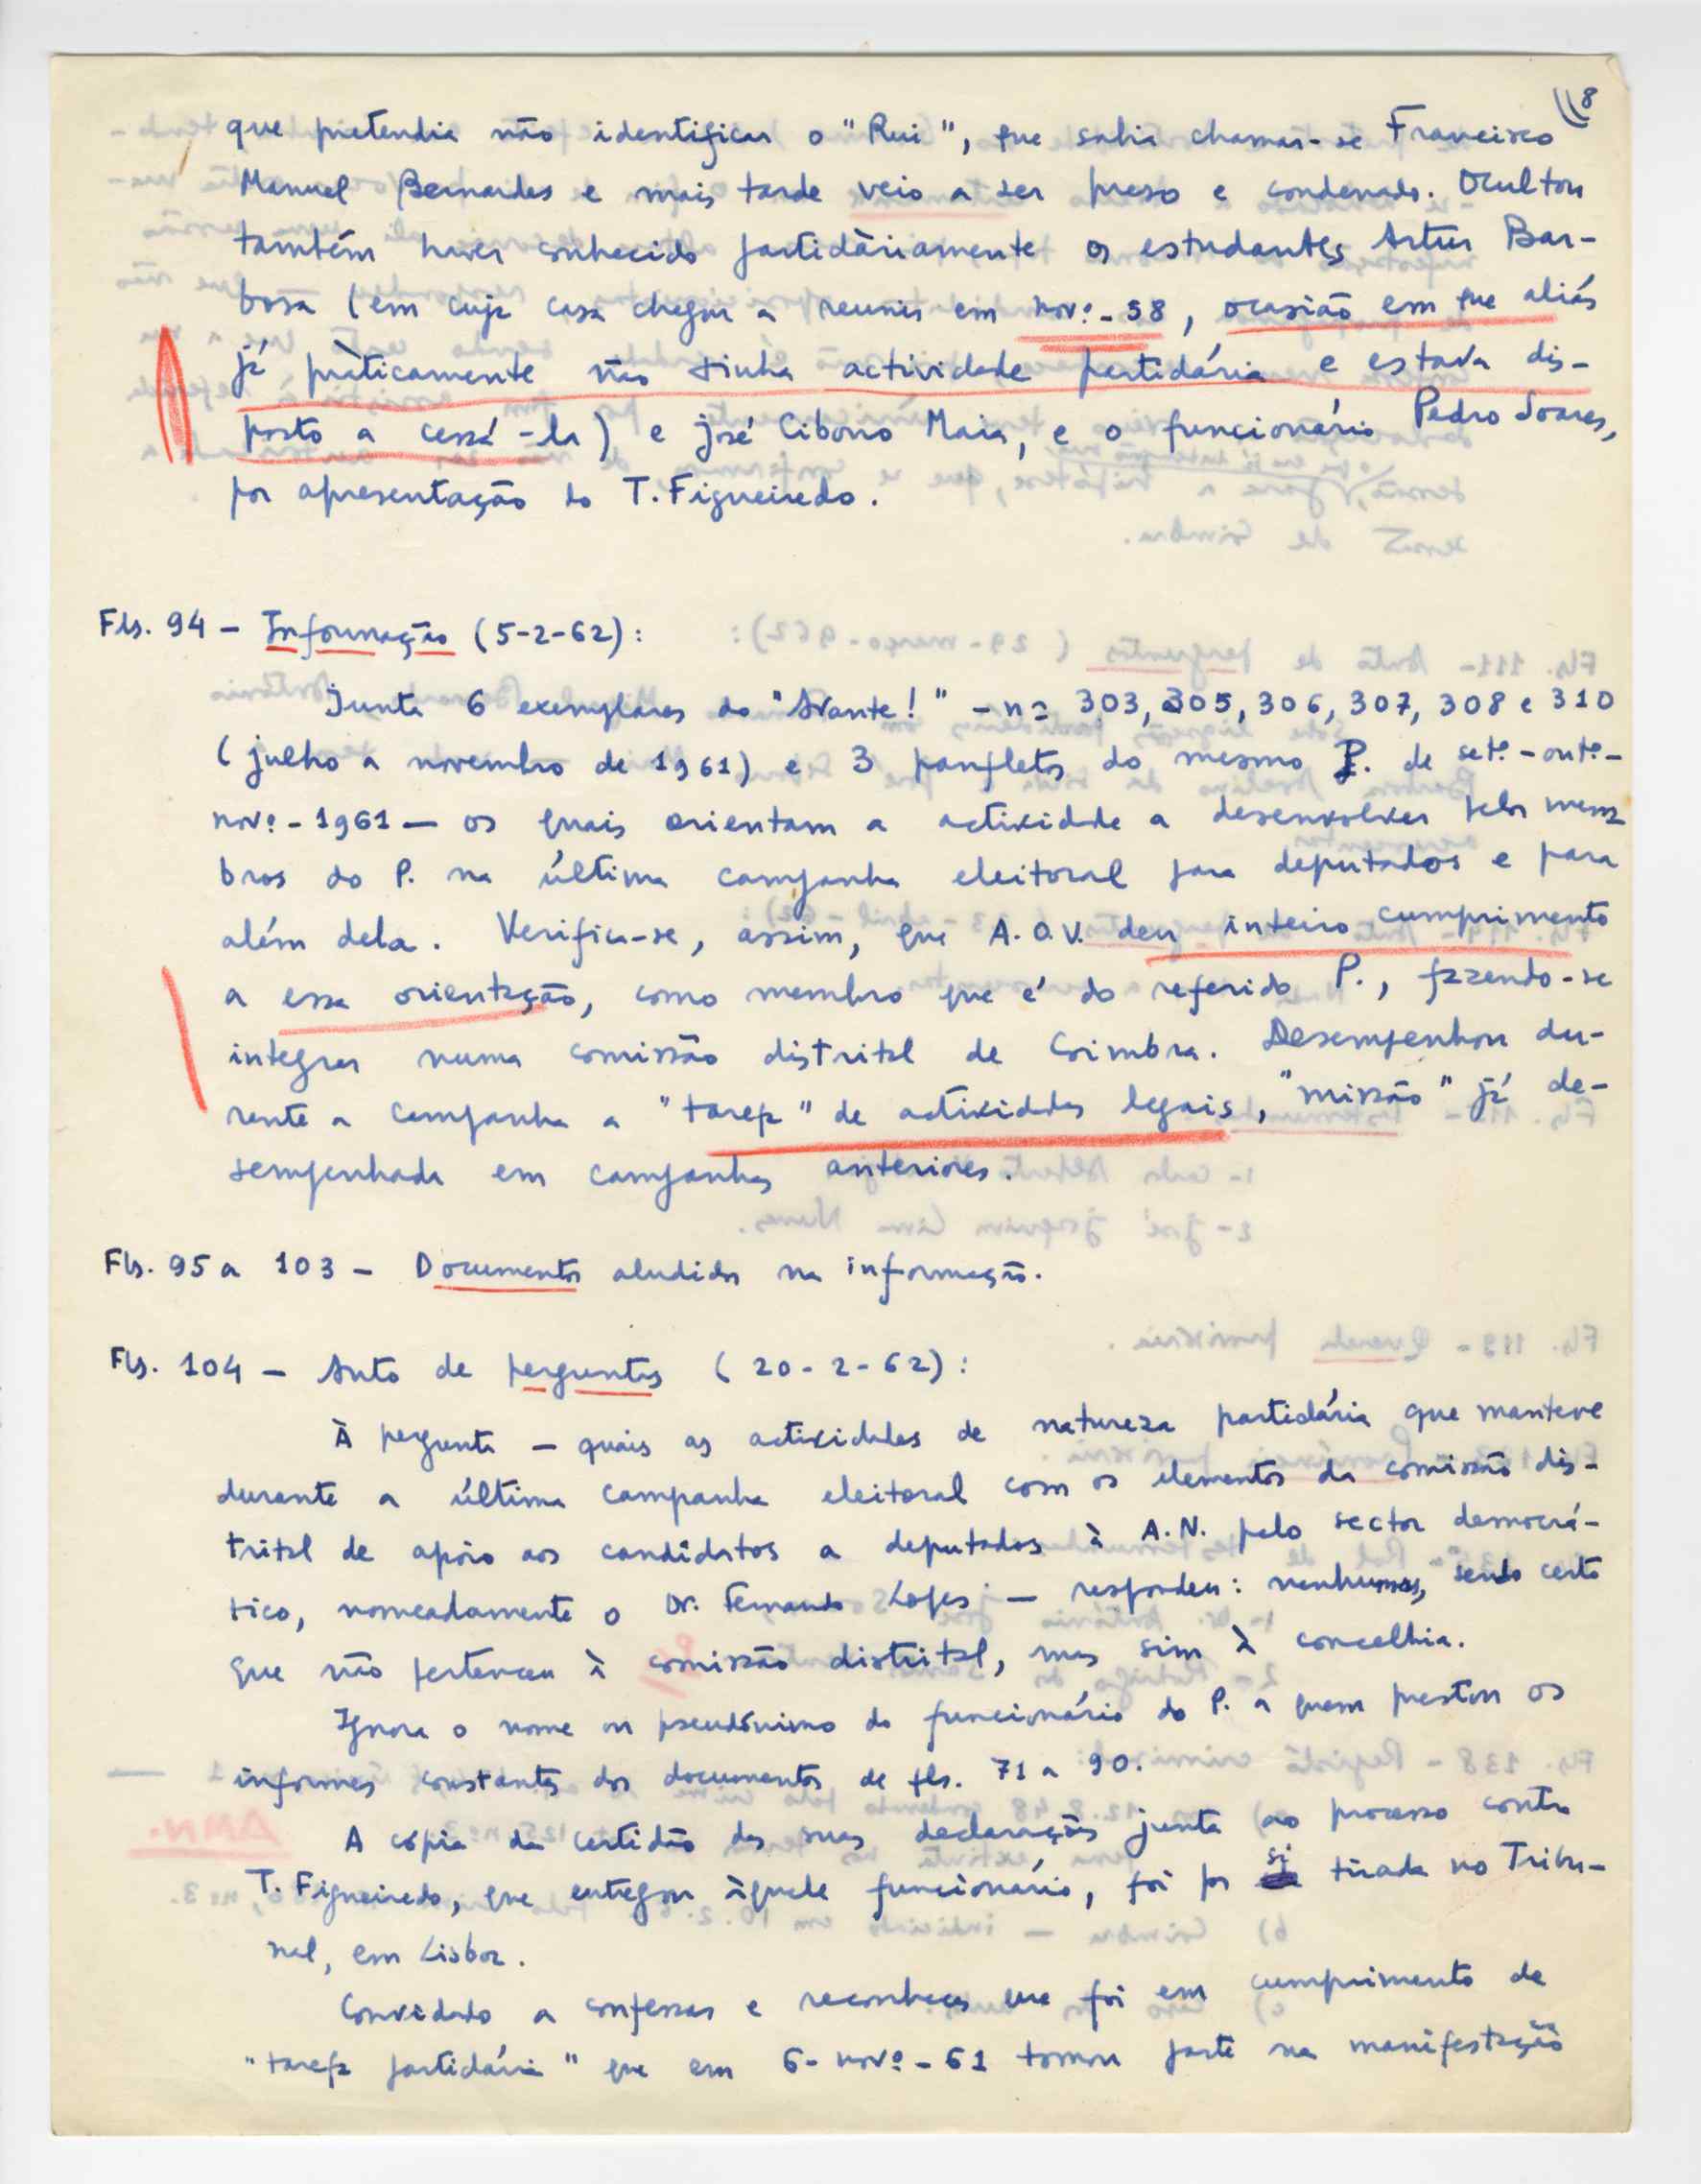 8
que pretendia não identificar o "Rui", que sabia chamar-se Francisco
Manuel Bernardes e mais tarde veio a ser preso e condenado. Ocultou
também haver conhecido partidàriamente os estudantes Artur Bar-
bosa (em cuja casa chegou a reunir em nov.º-58, ocasião em que aliás
já pràticamente não tinha actividade partidária e estava dis-
posto a cessá-la) e José Ciborro Maia, e o funcionário Pedro Soares,
por apresentação do T. Figueiredo.
Fls. 94 - Informação (5-2-62):
Junta 6 exemplares do "Avante!" - nºs 303, 305, 306, 307, 308 e 310
(julho a novembro de 1961) e 3 panfletos do mesmo P. de set.º-out.º-
nov.º-1961 - os quais orientam a actividade a desenvolver pelos mem-
bros do P. na última campanha eleitoral para deputados e para
além dela. Verifica-se, assim, que A.O.V. deu inteiro cumprimento
a essa orientação, como membro que é do referido P., fazendo-se
integrar numa comissão distrital de Coimbra. Desempenhou du-
rante a campanha a "tarefa" de actividades legais, "missão" já de-
sempenhada em campanhas anteriores.
Fls. 95 a 103 - Documentos aludidos na informação.
Fls. 104 - Auto de perguntas (20-2-62):
À pergunta - quais as actividades de natureza partidária que manteve
durante a última campanha eleitoral com os elementos da comissão dis-
trital de apoio aos candidatos a deputados à A.N. pelo sector democrá-
tico, nomeadamente o Dr. Fernando Lopes - respondeu: nenhumas, sendo certo
que não pertenceu à comissão distrital, mas sim à concelhia.
Ignora o nome ou pseudónimo do funcionário do P. a quem prestou os
informes constantes dos documentos de fls. 71 a 90.
A cópia da certidão das suas declarações junta ao processo contra
T. Figueiredo, que entregou àquele funcionário, foi por si tirada no Tribu-
nal, em Lisboa.
Convidado a confessar e reconhecer que foi em cumprimento de
"tarefa partidária" que em 6-nov.º-61 tomou parte na manifestação